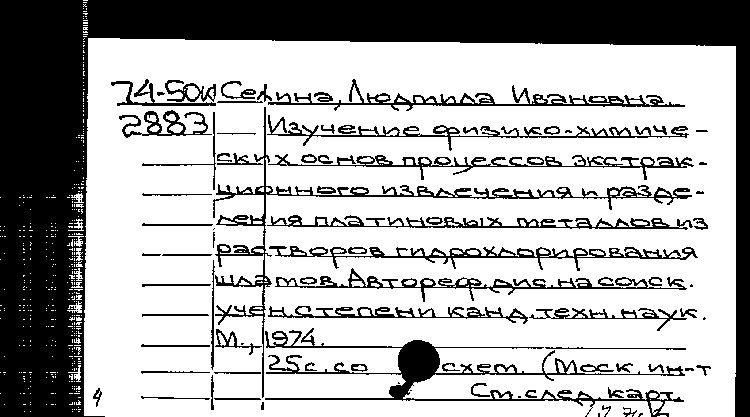 74-50к Селина, Людмила Ивановна.
2883 Изучение физико-химиче-
ских основ процессов экстрак-
ционного извлечения и разде-
ления платиновых металлов из
растворов гидрохлорирования
шламов. Автореф. дис. на соиск.
учен. степени канд. техн. наук.
М., 1974.
25 с. со схем. (Моск. ин-т
См. след. карт.